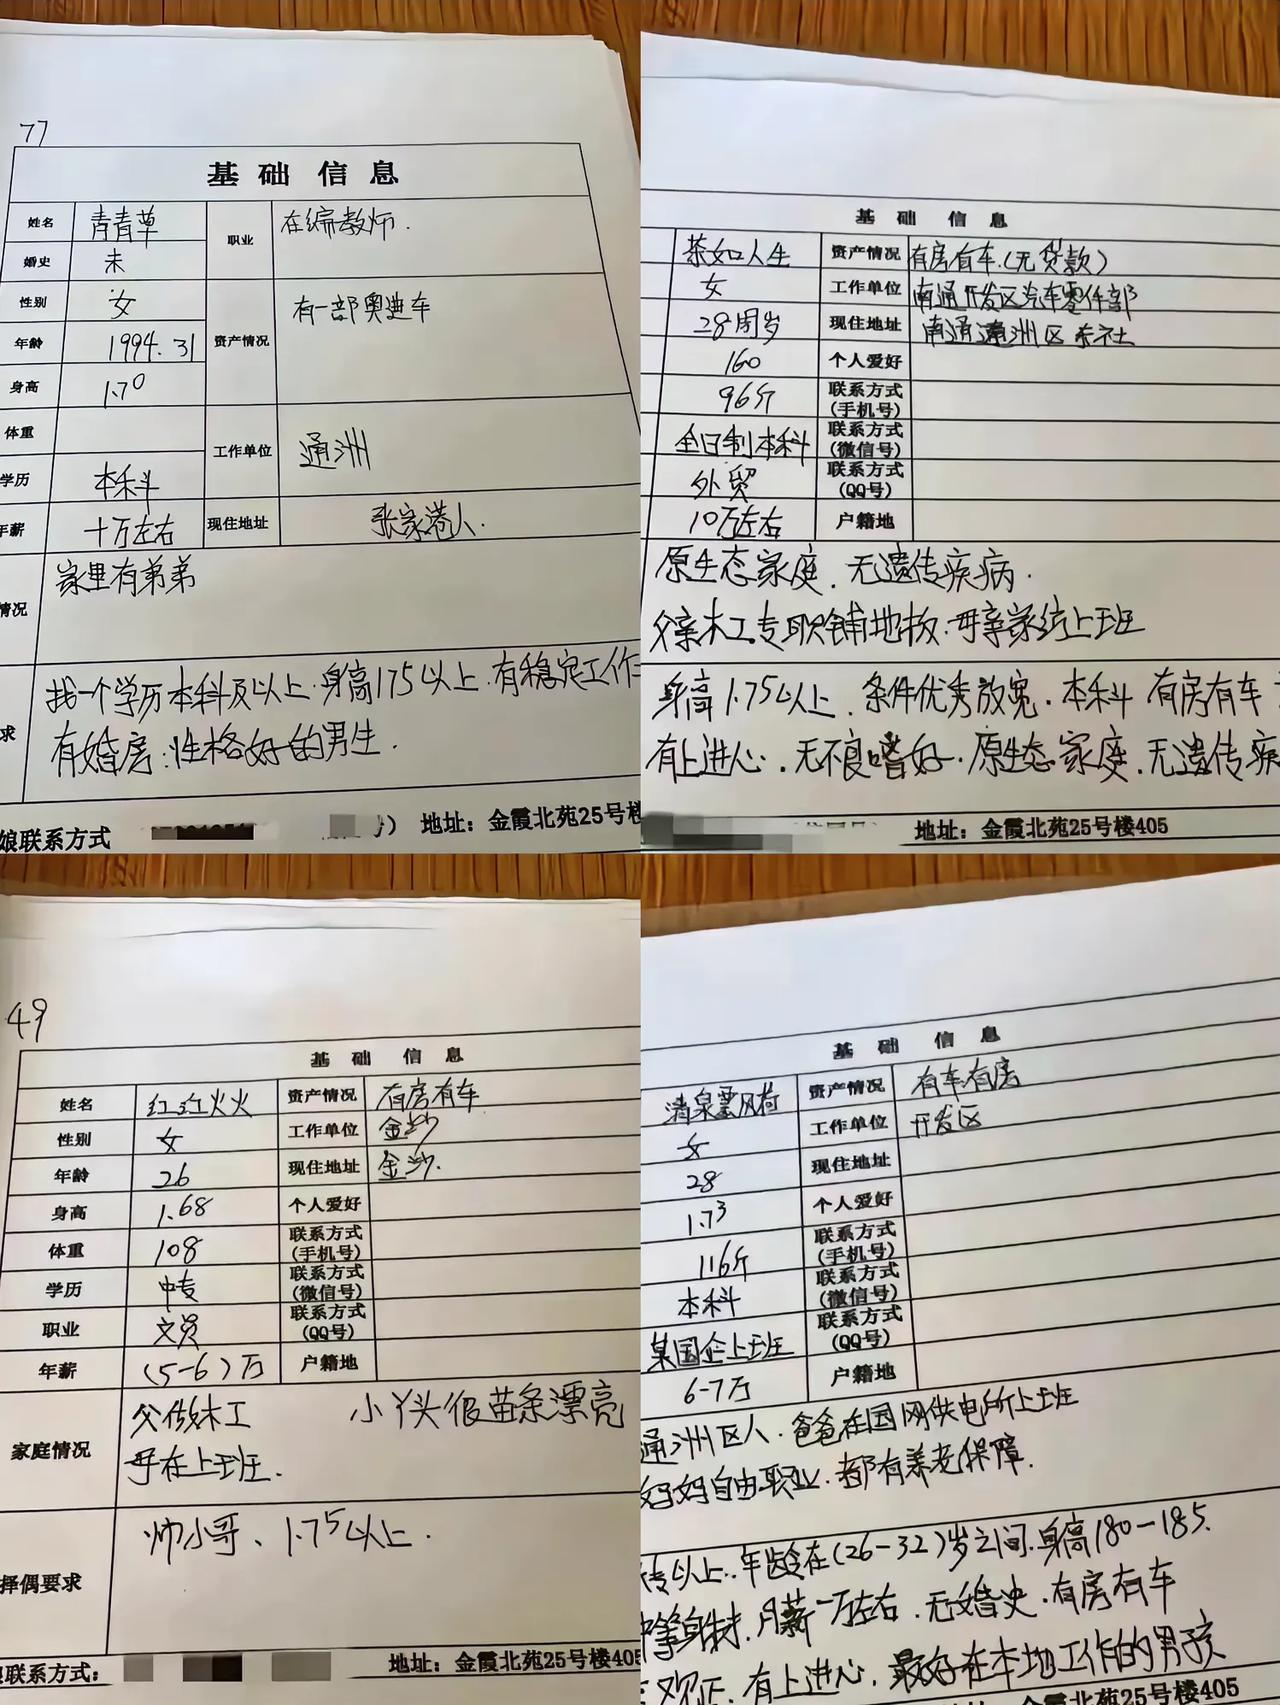 77
基础信息
姓名 青青草 职业 在编教师.
婚史 未
性别 女 资产情况 有一部奥迪车
年龄 1994.31
身高 1.70
体重 工作单位 通洲
学历 本科
年薪 十万左右 现住地址 张家港人.
情况 家里有弟弟
求 找一个学历本科及以上.身高175以上.有稳定工作
有婚房.性格好的男生.
娘联系方式 号） 地址：金霞北苑25号楼
基础信息
茶如人生 资产情况 有房有车.(无贷款)
女 工作单位 南通开发区汽车零件部
28周岁 现住地址 南通通洲区东社
160 个人爱好
96斤 联系方式(手机号)
全日制本科 联系方式(微信号)
外贸 联系方式(QQ号)
10万左右 户籍地
原生态家庭.无遗传疾病.
父亲木工专职铺地板.母亲家纺上班
身高1.75以上.条件优秀放宽.本科 有房有车
有上进心.无不良嗜好.原生态家庭.无遗传疾
地址：金霞北苑25号楼405
49
基础信息
姓名 红红火火 资产情况 有房有车
性别 女 工作单位 金沙
年龄 26 现住地址 金沙.
身高 1.68 个人爱好
体重 108 联系方式(手机号)
学历 中专 联系方式(微信号)
职业 文员 联系方式(QQ号)
年薪 (5-6)万 户籍地
家庭情况 父做木工 小丫头很苗条漂亮
母在上班.
择偶要求 帅小哥、1.75以上.
联系方式： 地址：金霞北苑25号楼405
基础信息
清泉雲风荷 资产情况 有车有房
女 工作单位 开发区
28 现住地址
1.73 个人爱好
116斤 联系方式(手机号)
本科 联系方式(微信号)
某国企上班 联系方式(QQ号)
6-7万 户籍地
通洲区人.爸爸在国网供电所上班
妈妈自由职业.都有养老保障.
专以上.年龄在(26-32)岁之间.身高180-185.
身材.月薪一万左右.无婚史.有房有车
观正.有上进心.最好在本地工作的男孩
金霞北苑25号楼405